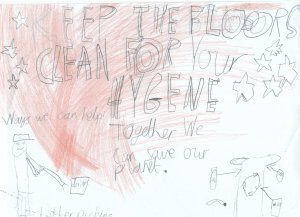 KEEP THE FLOORS
CLEAN FOR Your
HYGENE
Ways we can help!
Together We
can save our
planet.